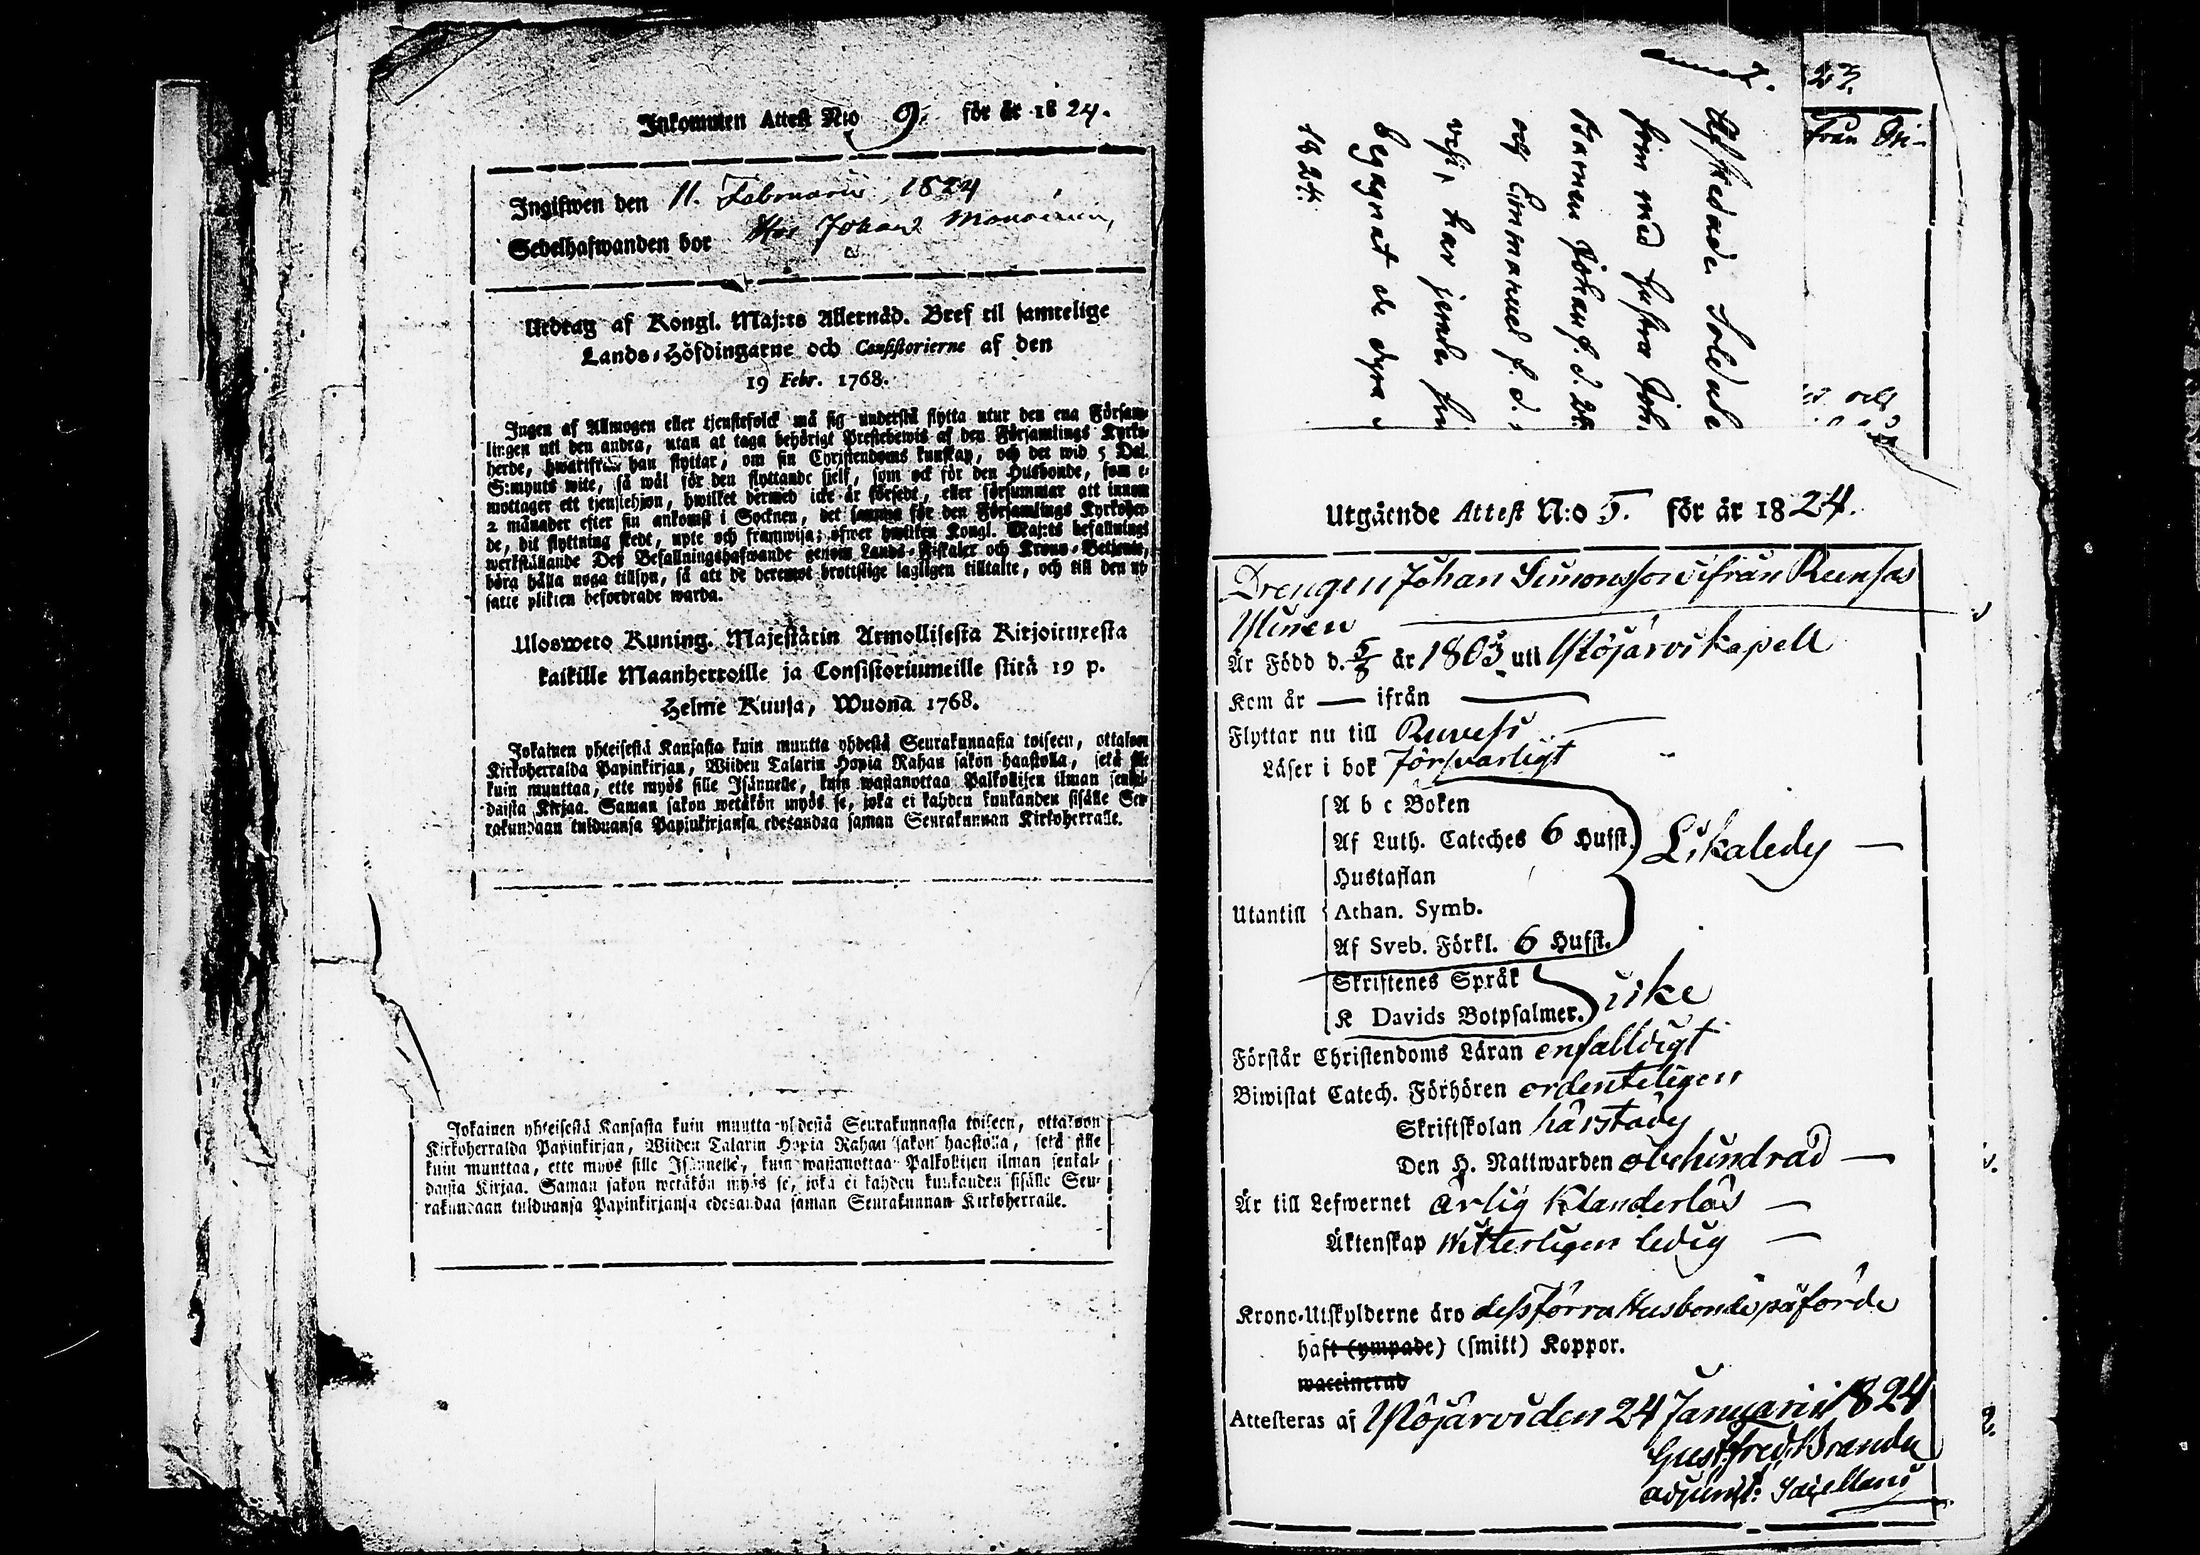 Inkommen Attest N:o 9. för år 1824.
Ingifwen den 11. Februarii 1824
Sedelhafwanden bor Hos Johan
Utdrag af Kongl. Maj:ts Allernåd. Bref til samtelige
Lands-Höfdingarne och Consistorierne af den
19 Febr. 1768.
Ingen af Allmogen eller tjenstefolck må sig understå flytta utur den ena Försam-
lingen uti den andra, utan at taga behörigt Prestebewis af den Församlings Kyrko-
herde, hwarifrån han flyttar, om sin Christendoms kunskap, och det wid 5 Dal.
S:mynts wite, så wäl för den flyttande sjelf, som ock för den Husbonde, som e-
mottager ett tjenstehjon, hwilket dermed icke är försedt, eller försummar att innom
2 månader efter sin ankomst i Socknen, det samma för den Församlings Kyrkoher-
de, dit flyttning skedt, upte och framwisa; öfwer hwilken Kongl. Maj:ts befallnings
werkställande Deß Befallningshafwande genom Lands-Fiskaler och Krono-Betjente,
böra hålla noga tillsyn, så att de deremot brottslige lagligen tilltalte, och till den ut-
satte plikten befordrade warda.
Ulosweto Kuning. Majestätin Armollisesta Kirjoituxesta
kaikille Maanherroille ja Consistoriumeille siitä 19 p.
Helme Kuusa, Wuona 1768.
Jokainen yhteisestä Kansasta kuin muutta yhdestä Seurakunnasta toiseen, ottakoon
Kirkoherralda Papinkirjan, Wiiden Talarin Hopia Rahan sakon haastolla, sekä sille
kuin muuttaa, ette myös sille Isännelle, kuin wastanottaa Palkollisen ilman senkal-
daista Kirjaa. Saman sakon wetäkön myös se, joka ei kahden kuukauden sisälle Seu-
rakundaan tulduansa Papinkirjansa edesandaa saman Seurakunnan Kirkoherralle.
Jokainen yhteisestä Kansasta kuin muutta yhdestä Seurakunnasta toiseen, ottakoon
Kirkoherralda Papinkirjan, Wiiden Talarin Hopia Rahan sakon haastolla, sekä sille
kuin muuttaa, ette myös sille Isännelle, kuin wastanottaa Palkollisen ilman senkal-
daista Kirjaa. Saman sakon wetäkön myös se, joka ei kahden kuukauden sisälle Seu-
rakundaan tulduansa Papinkirjansa edesandaa saman Seurakunnan Kirkoherralle.
23.
från
Afskedade Soldate
som med hustru Joh.
Barnen Johan f. d. 28
och Emmanuel f. d.
vesi, har jemte
begagnat de dyra
1824.
Utgående Attest N:o 5. för år 1824.
Drengen Johan Simonsson ifrån Reinsas
Minen
Är Född d. 5/8 år 1803 uti Ylöjärvi kapell
Kom år — ifrån —
Flyttar nu till Ruovesi
Läser i bok försvarligt
A b c Boken
Af Luth. Cateches 6 Hufst.
Hustaflan
Likaledes
Utantill
Athan. Symb.
Af Sveb. Förkl. 6 Hufst.
Skriftenes Språk
K Davids Botpsalmer.
icke
Förstår Christendoms Läran enfalldigt
Biwistat Catech. Förhören ordenteligen
Skriftskolan härstädes
Den H. Nattwarden obehindrad —
Är till Lefwernet ärlig Klanderlös —
Äktenskap Witterligen ledig —
Krono-Utskylderne äro dess förra Husbonde påförde
haft (ympade) (smitt) Koppor.
waccinerad
Attesteras af Ylöjärvi den 24 Januarii 1824
Gust: fred: Brander
adjunct: Sacellans